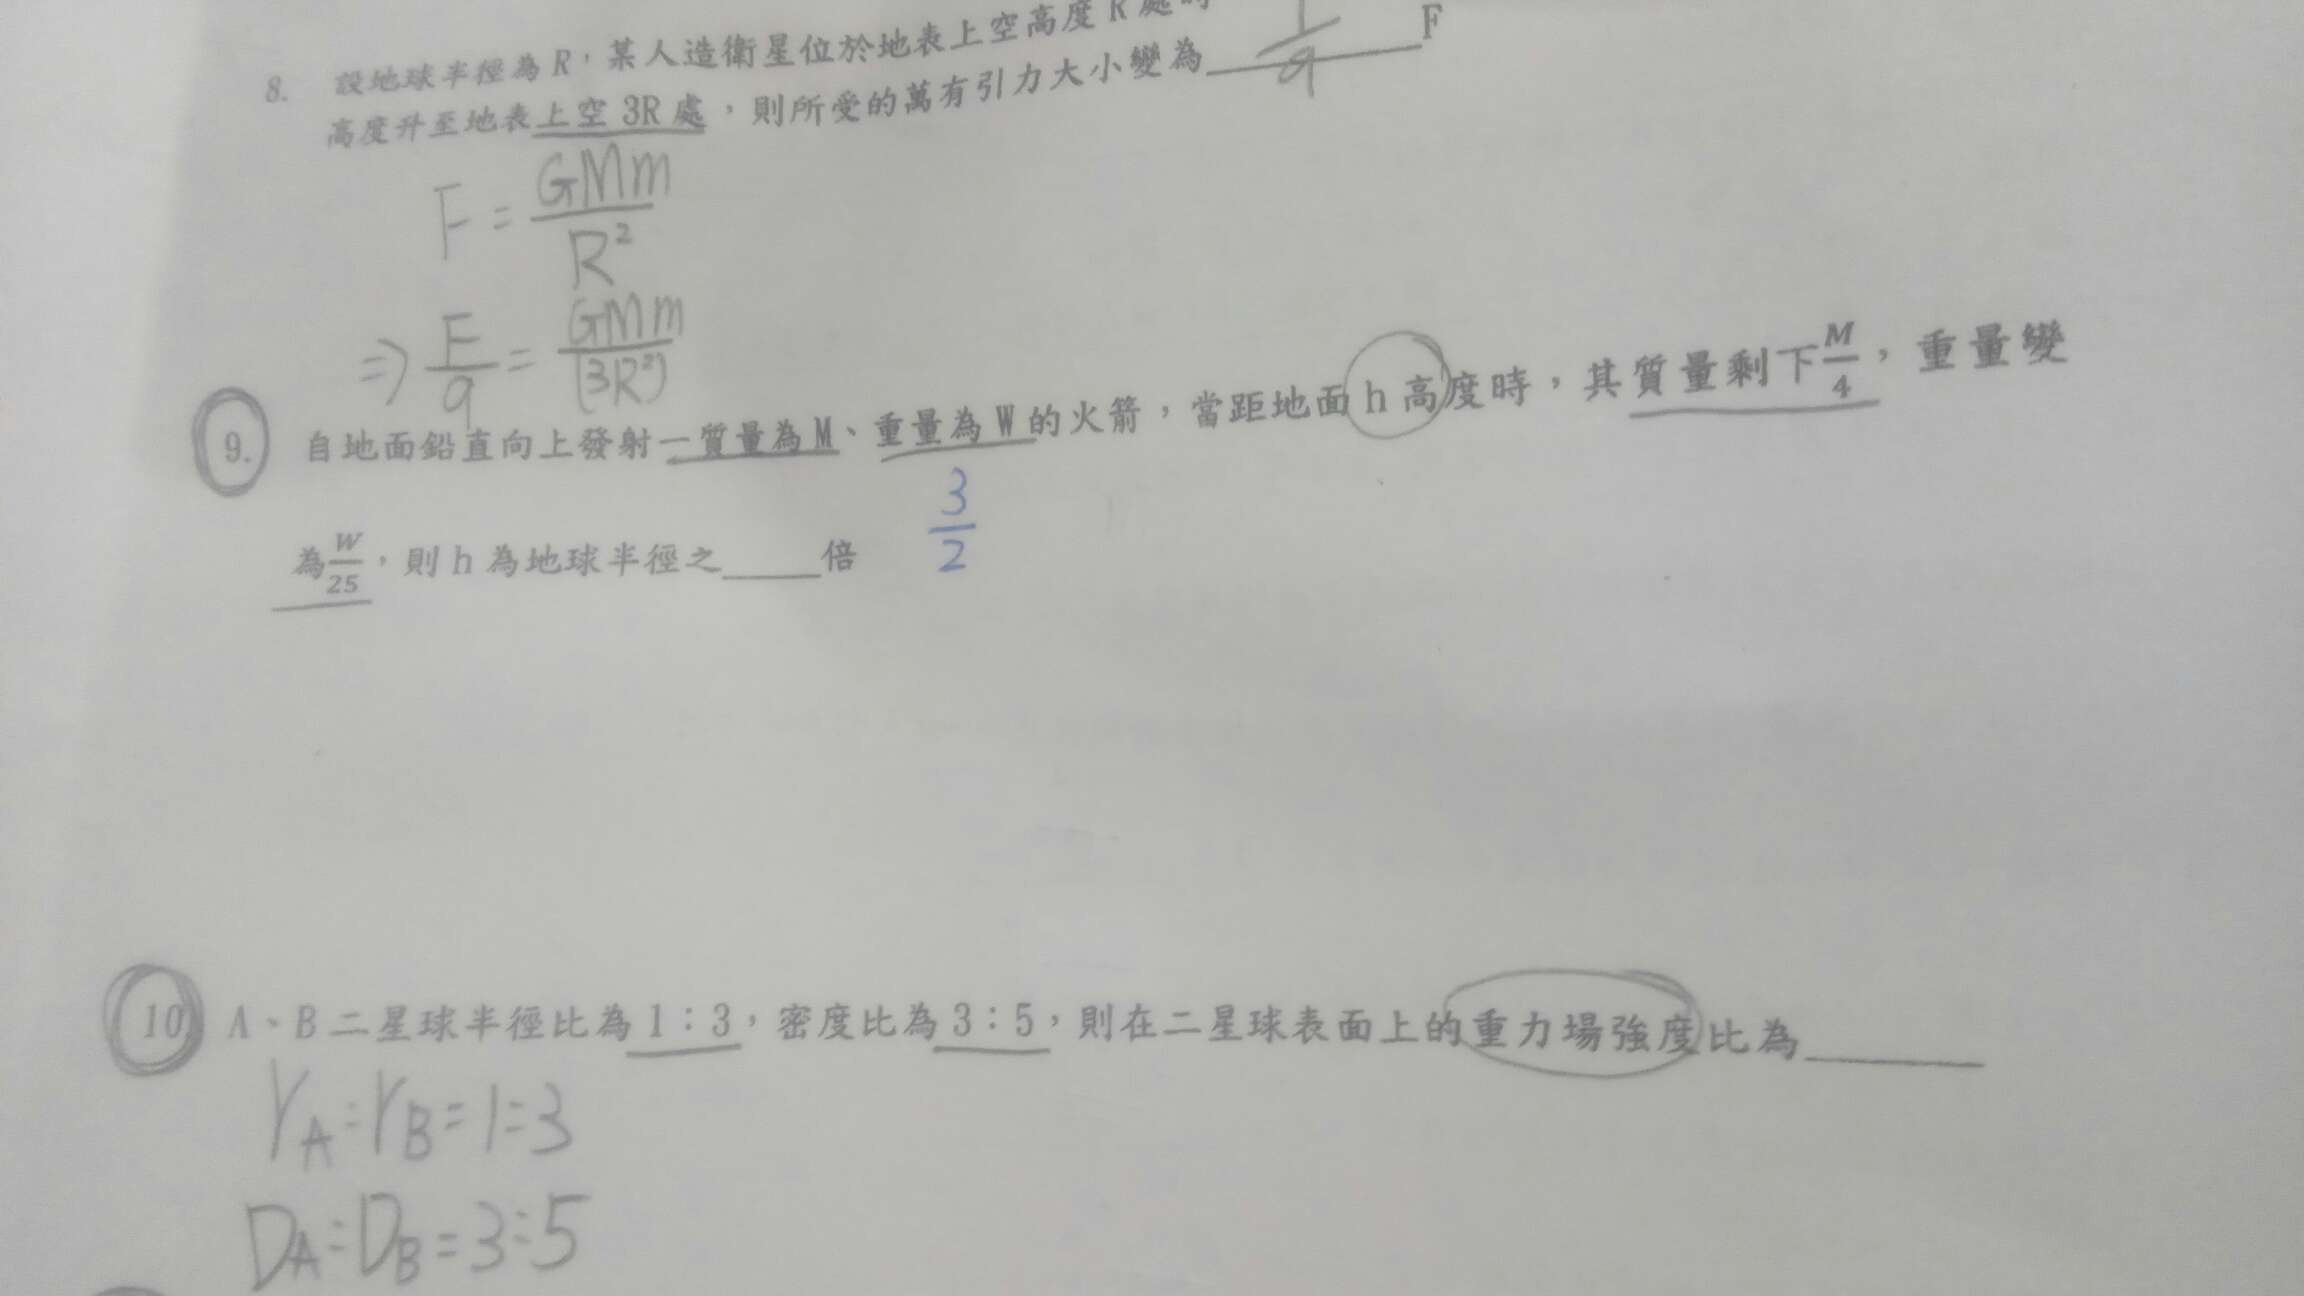 8. 設地球半徑為R，某人造衛星位於地表上空高度R處時
高度升至地表上空 3R 處，則所受的萬有引力大小變為 1/9 F
F = GMm/R²
⇒ F/9 = GMm/(3R²)
9. 自地面鉛直向上發射一質量為M、重量為W的火箭，當距地面h高度時，其質量剩下M/4，重量變
3/2
為W/25，則h為地球半徑之_____倍
10 A、B二星球半徑比為1：3，密度比為3：5，則在二星球表面上的重力場強度比為_____
rA:rB=1:3
DA:DB=3:5